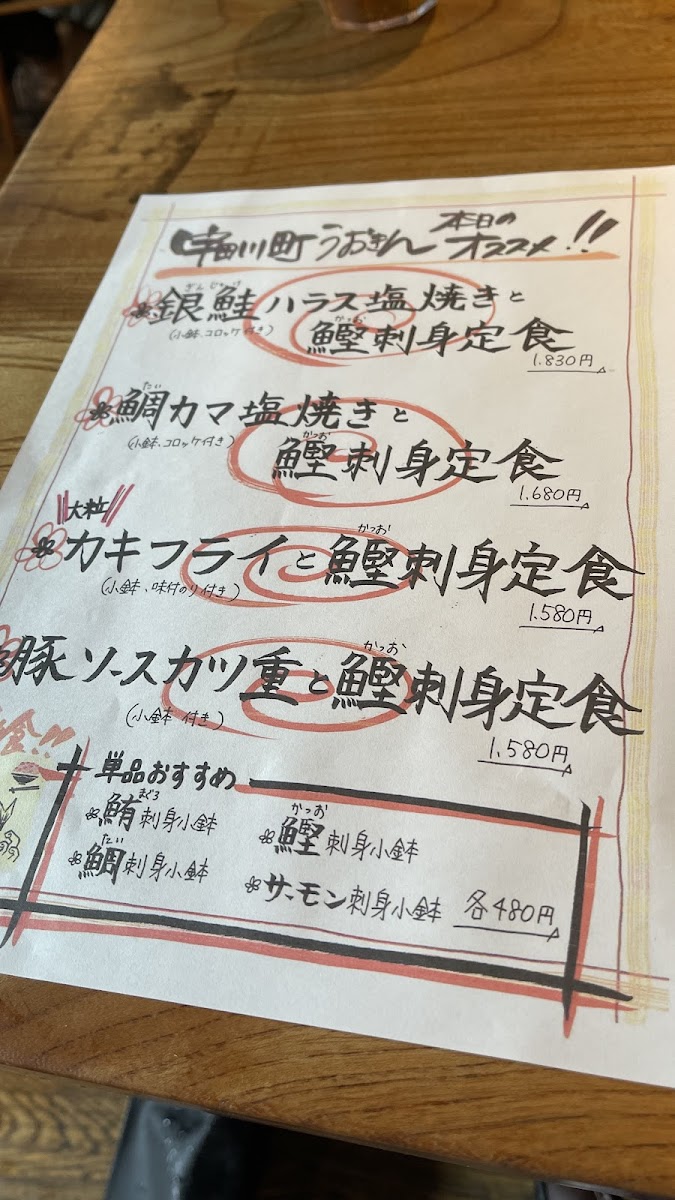 宇田川町うおきん 本日のオススメ!!
銀鮭ハラス塩焼きと
ぎんじゃけ
(小鉢、コロッケ付き)
鰹刺身定食
かつお
1.830円
鯛カマ塩焼きと
たい
(小鉢、コロッケ付き)
鰹刺身定食
かつお
1.680円
大粒
カキフライと鰹刺身定食
かつお
(小鉢、味付のり付き)
1.580円
豚ソースカツ重と鰹刺身定食
かつお
(小鉢 付き)
1.580円
単品おすすめ
鮪刺身小鉢
まぐろ
鰹刺身小鉢
かつお
鯛刺身小鉢
たい
サーモン刺身小鉢 各480円